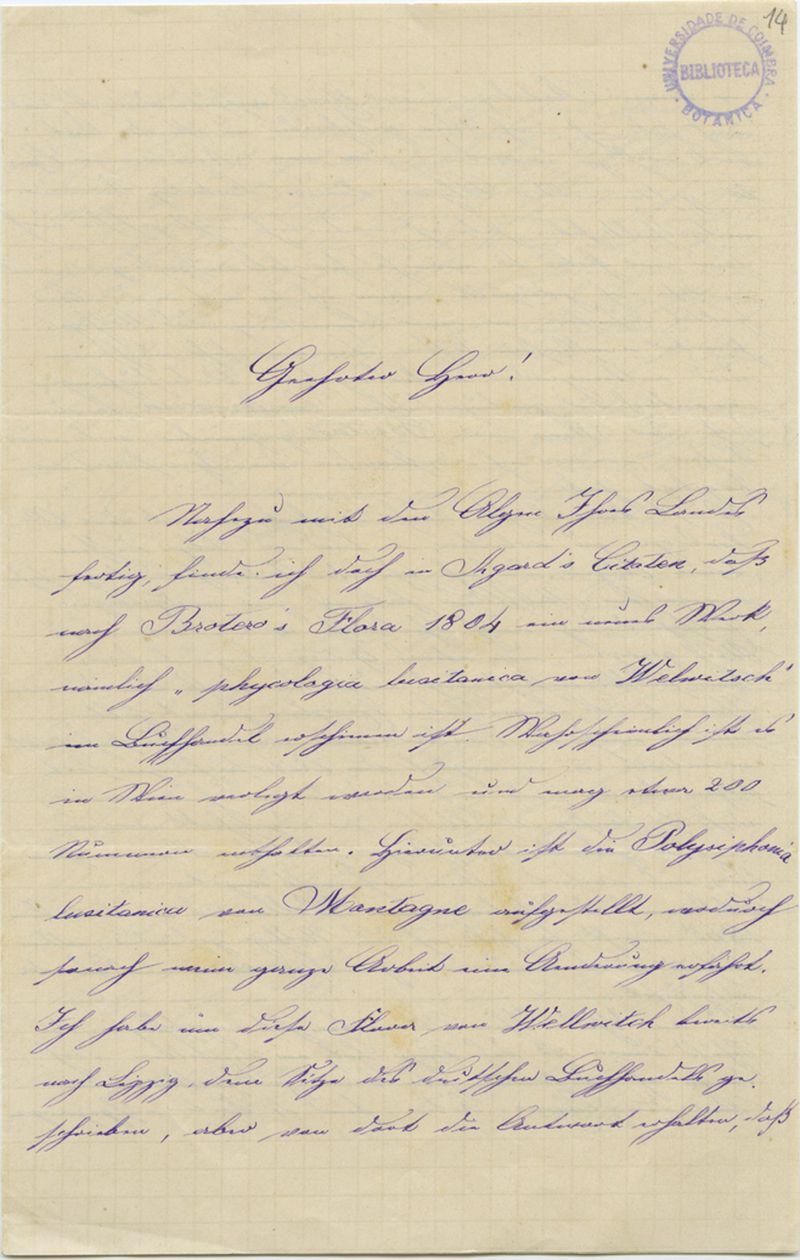 14
UNIVERSIDADE DE COIMBRA
BIBLIOTECA
BOTANICA
Geehrter Herr!
Nahezu mit den Algen Ihres Landes
fertig, finde ich doch in Agard's Citaten, daß
nach Brotero's Flora 1804 ein neues Werk,
nämlich „phycologia lusitanica von Welwitsch"
im Buchhandel erschienen ist. Wahrscheinlich ist es
in Wien verlegt worden und mag etwa 200
Nummern enthalten. Hierunter ist die Polysiphonia
lusitanica von Montagne aufgestellt, wodurch
sonach meine ganze Arbeit eine Aenderung erfährt.
Ich habe um diese Flora von Wellwitch bereits
nach Leipzig, dem Sitze des deutschen Buchhandels ge-
schrieben, aber von dort die Antwort erhalten, daß